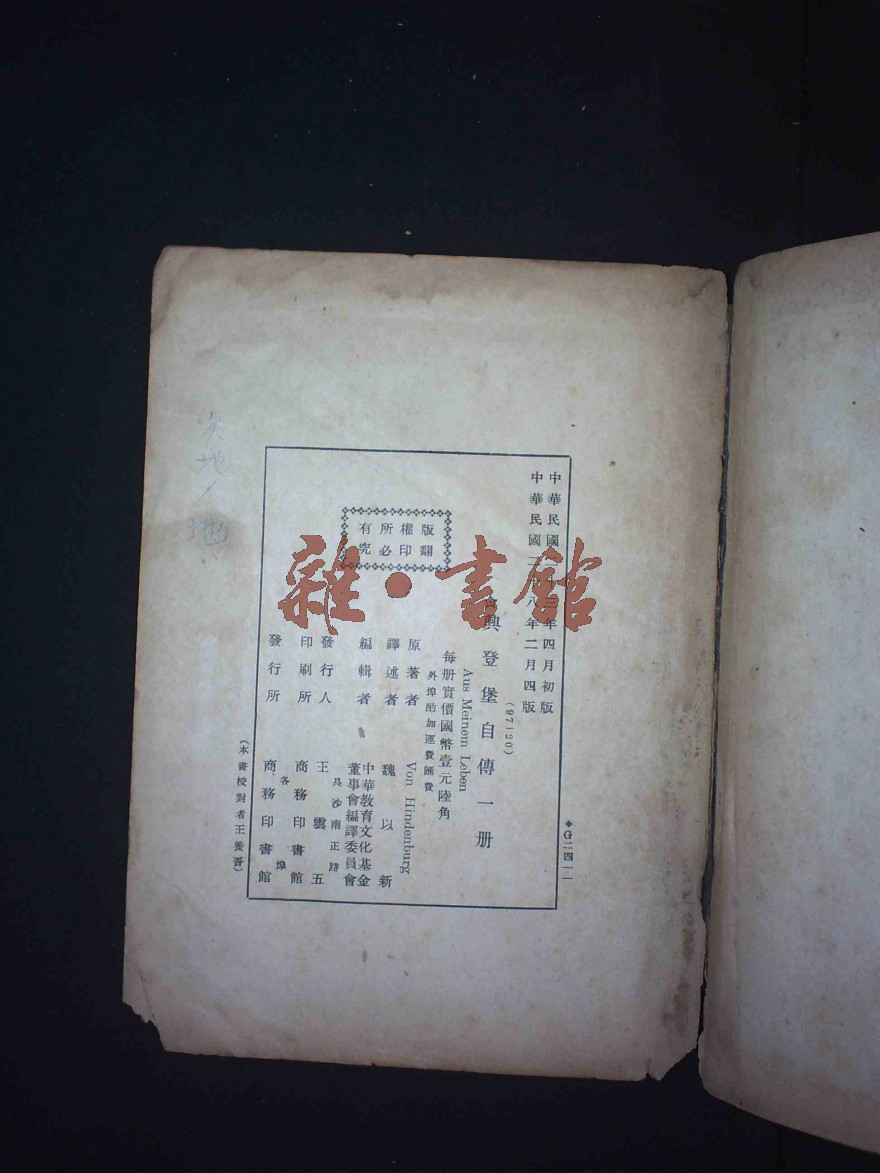 中華民國二十三年四月初版
中華民國二十八年二月四版
(97120)
興登堡自傳一册
Aus Meinem Leben
每册實價國幣壹元陸角
外埠酌加運費匯費
版權所有
翻印必究
原著者 Von Hindenburg
譯述者 魏以新
編輯者 中華教育文化基金董事會編譯委員會
發行人 王雲五
長沙南正路
印刷所 商務印書館
發行所 商務印書館
各埠
(本書校對者王養吾)
◆G二四一一
雜·書館